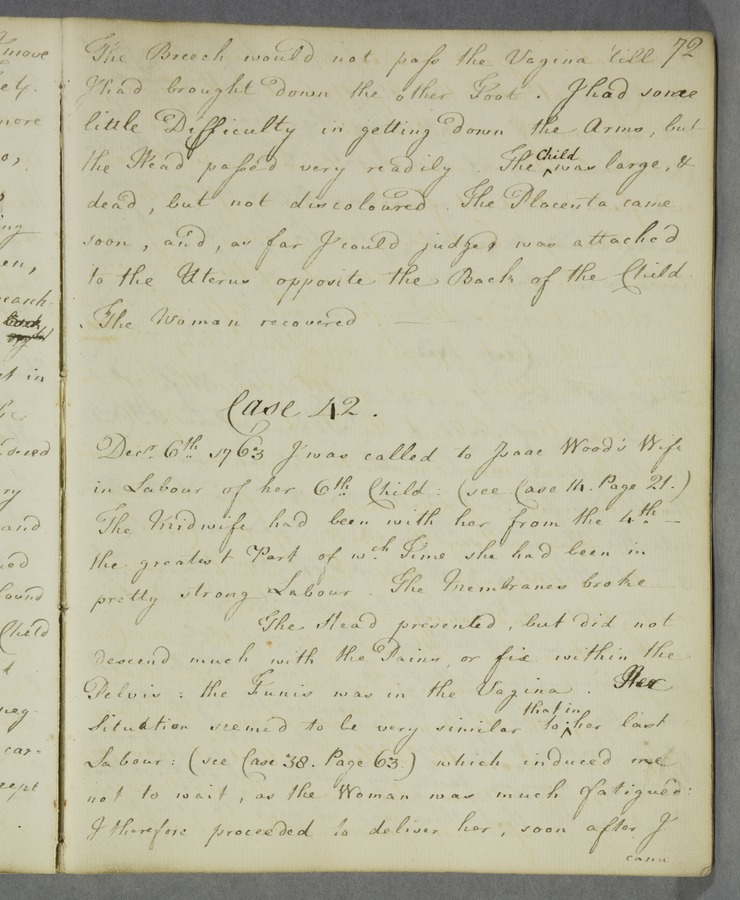 72
The Breech would not pass the Vagina 'till
I had brought down the other Foot. I had some
little Difficulty in getting down the Arms, but
the Head passed very readily. The Child was large, &
dead, but not discoloured. The Placenta came
soon, and, as far I could judge, was attached
to the Uterus opposite the Back of the Child.
The Woman recovered. —
Case 42.
Decr. 6th. 1763 I was called to Isaac Wood's Wife
in Labour of her 6th. Child: (see Case 14. Page 21.)
The Midwife had been with her from the 4th. —
the greatest Part of wch. Time she had been in
pretty strong Labour. The Membranes broke
The Head presented, but did not
descend much with the Pains, or fix within the
Pelvis: the Funis was in the Vagina. Her
Situation seemed to be very similar to that in her last
Labour: (see Case 38. Page 63.) which induced me
not to wait, as the Woman was much fatigued:
I therefore proceeded to deliver her, soon after I
came